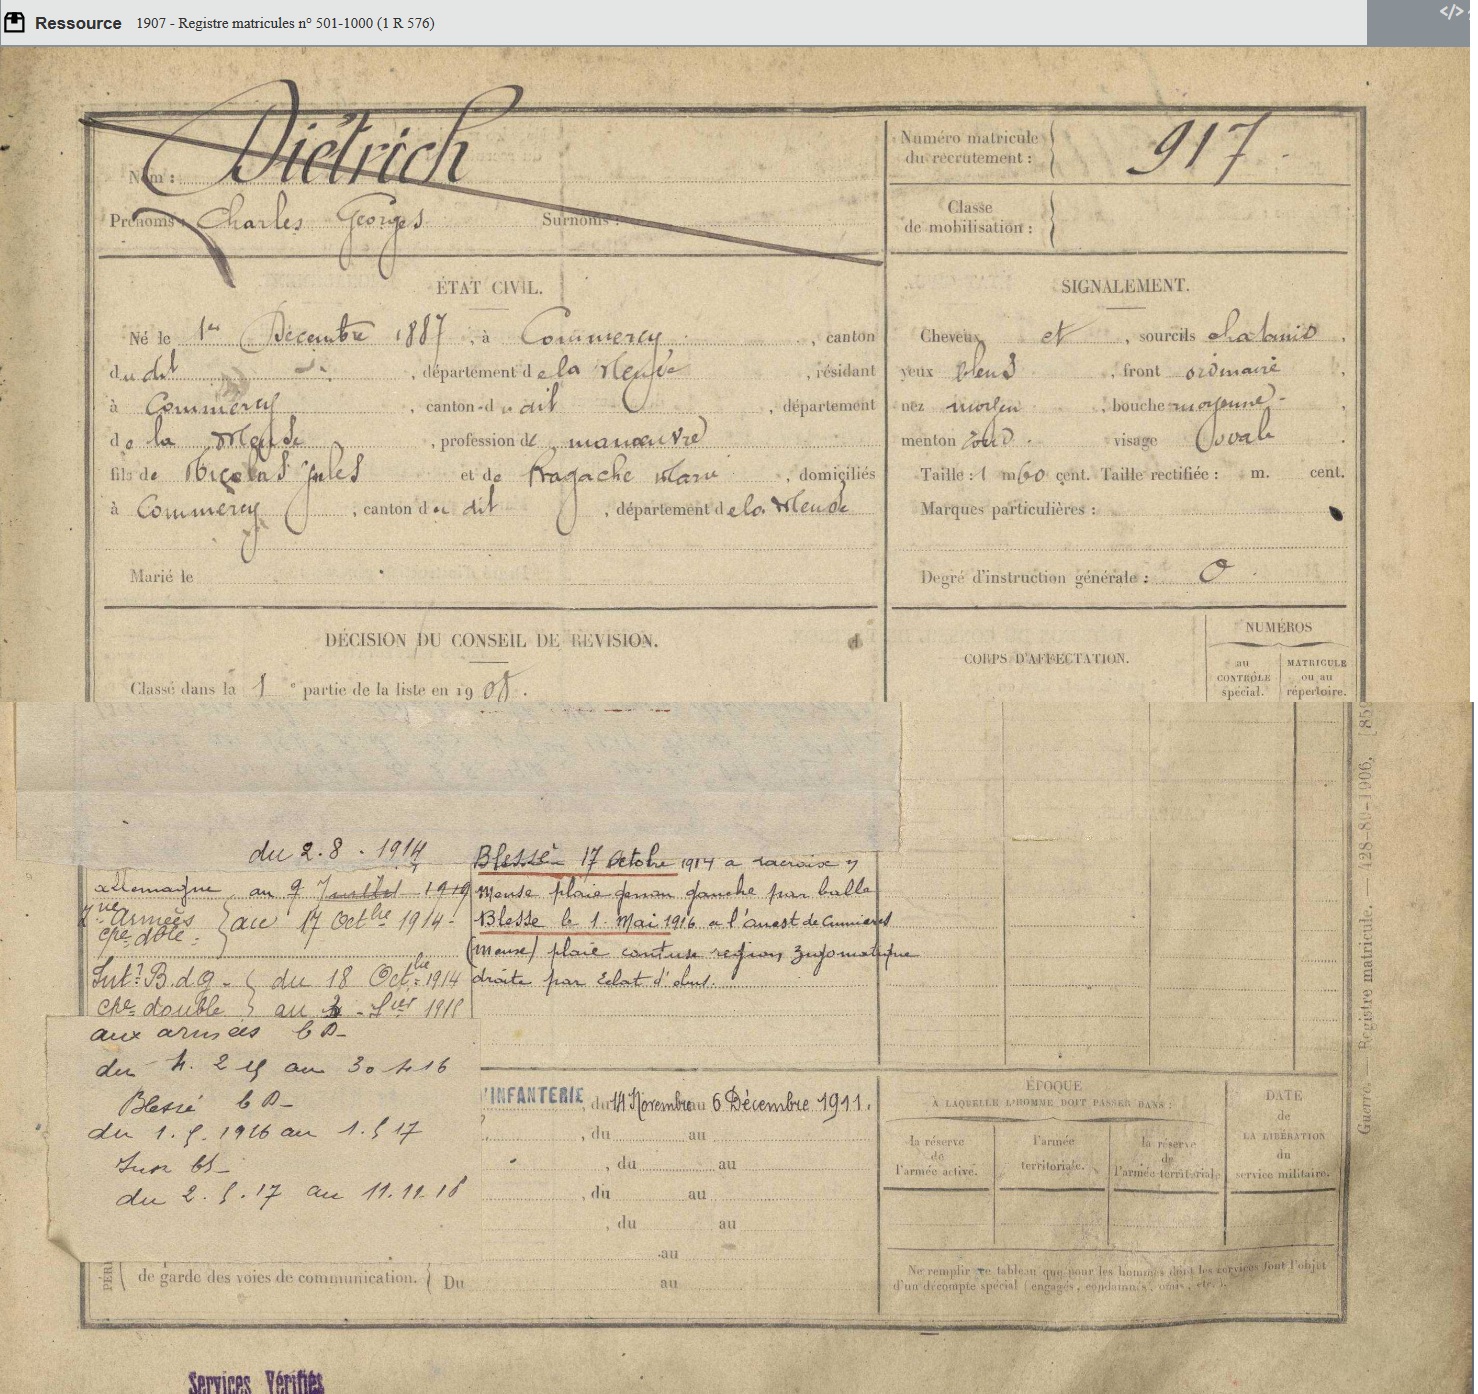 Ressource 1907 - Registre matricules n° 501-1000 (1 R 576)
Nom : Diétrich
Prénoms : Charles Georges Surnoms :
Numéro matricule du recrutement : 917
Classe de mobilisation :
ÉTAT CIVIL.
Né le 1er Décembre 1887, à Commercy, canton
dudit, département de la Meuse, résidant
à Commercy, canton dudit, département
de la Meuse, profession de manœuvre
fils de Nicolas Jules et de Ragache Marie, domiciliés
à Commercy, canton du dit, département de la Meuse
Marié le
SIGNALEMENT.
Cheveux et sourcils chatains,
yeux bleus, front ordinaire,
nez moyen, bouche moyenne,
menton rond visage Ovale.
Taille : 1 m 60 cent. Taille rectifiée : m. cent.
Marques particulières :
Degré d'instruction générale : 0
DÉCISION DU CONSEIL DE REVISION.
Classé dans la 1e partie de la liste en 1908.
CORPS D'AFFECTATION.
NUMÉROS
au CONTRÔLE spécial.
MATRICULE ou au répertoire.
du 2.8.1914
allemagne au 9 Juillet 1919
Armées
cpe dble : au 17 Octbre 1914
Int. B.d.g. du 18 Octbre 1914
cpe double au
aux armées
du 4. 2 15 au 30 4 16
Blessé
du 1. 5. 1916 au 1. 5 17
du 2. 5. 17 au 11. 11. 18
Blessé 17 Octobre 1914 a Lacroix s/
Meuse plaie genou gauche par balle
Blessé le 1. Mai 1916 a l'ouest de Cumières
(Meuse) plaie contuse region zygomatique
droite par éclat d'obus.
D'INFANTERIE, du 14 Novembre au 6 Décembre 1911.
, du au
, du au
, du au
, du au
au
de garde des voies de communication. Du au
ÉPOQUE
À LAQUELLE L'HOMME DOIT PASSER DANS :
la réserve de l'armée active.
l'armée territoriale.
la réserve de l'armée territoriale.
DATE de LA LIBÉRATION du service militaire.
Ne remplir ce tableau que pour les hommes dont les services font l'objet
d'un décompte spécial (engagés, condamnés, omis, etc.).
Guerre. — Registre matricule. — 428-89-1906.
Services Vérifiés